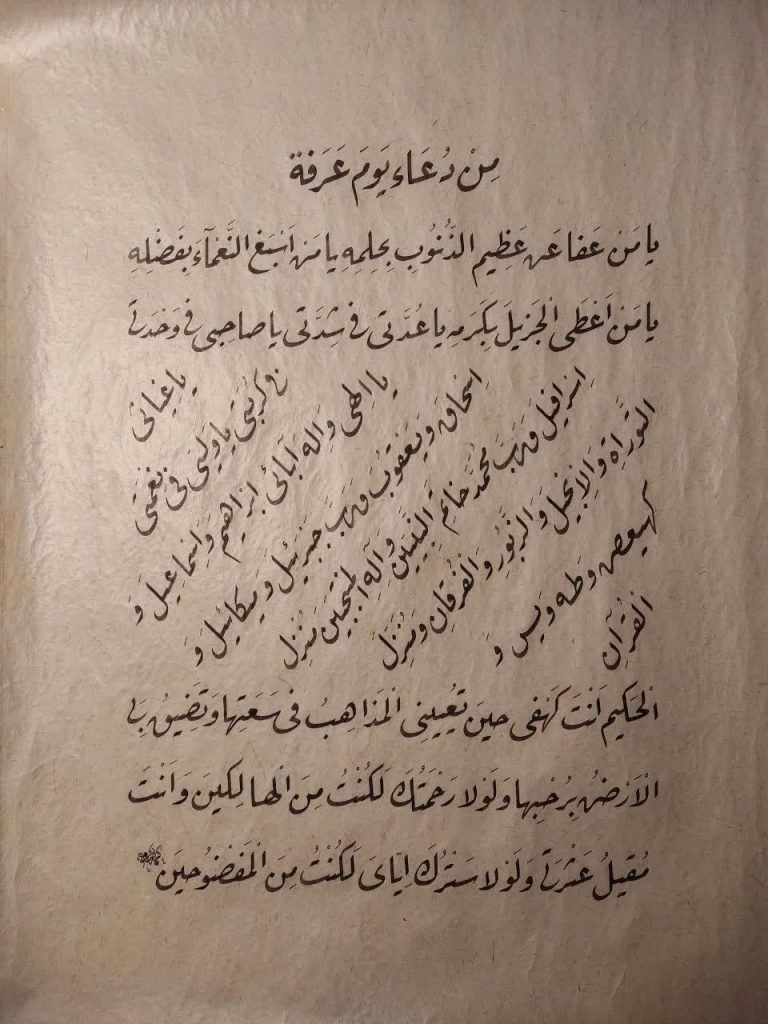 مِنْ دُعَاءِ يَومَ عَرَفَة
يا مَنْ عَفا عَن عَظِيمِ الذُّنُوبِ بِحِلمِهِ يا مَن اَسْبَغَ النَّعْمآءَ بِفَضْلِهِ
يا مَن اَعْطَى الْجَزيلَ بِكَرَمِهِ يا عُدَّتى فى شِدَّتى يا صاحِبى فى وَحْدَتى
يا غِياثى
فى كُرْبَتى يا وَلِيّى فى نِعْمَتى
يا اِلهى وَاِلهَ آبائى اِبْراهيمَ وَاِسْماعيلَ وَ
اِسْحاقَ وَيَعْقُوبَ وَرَبَّ جَبْرَئيلَ وَميكائيلَ وَ
اِسْرافيلَ وَرَبَّ مُحَمَّدٍ خاتِمِ النَّبِيّينَ وَآلِهِ الْمُنْتَجَبينَ مُنْزِلَ
التَّوْراةِ وَالاِنْجيلِ وَالزَّبُورِ وَالْفُرْقانِ وَمُنَزِّلَ
كهيعص وَطه وَيس وَ
الْقُرآنِ
الْحَكيمِ اَنْتَ كَهْفى حينَ تُعْيينِى الْمَذاهِبُ فى سَعَتِها وَتَضيقُ بِىَ
الْاَرْضُ بِرُحْبِها وَلَوْلا رَحْمَتُكَ لَكُنْتُ مِنَ الْهالِكينَ وَاَنْتَ
مُقيلُ عَثْرَتى وَلَوْلا سَتْرُكَ اِيّاىَ لَكُنْتُ مِنَ الْمَفْضُوحينَ